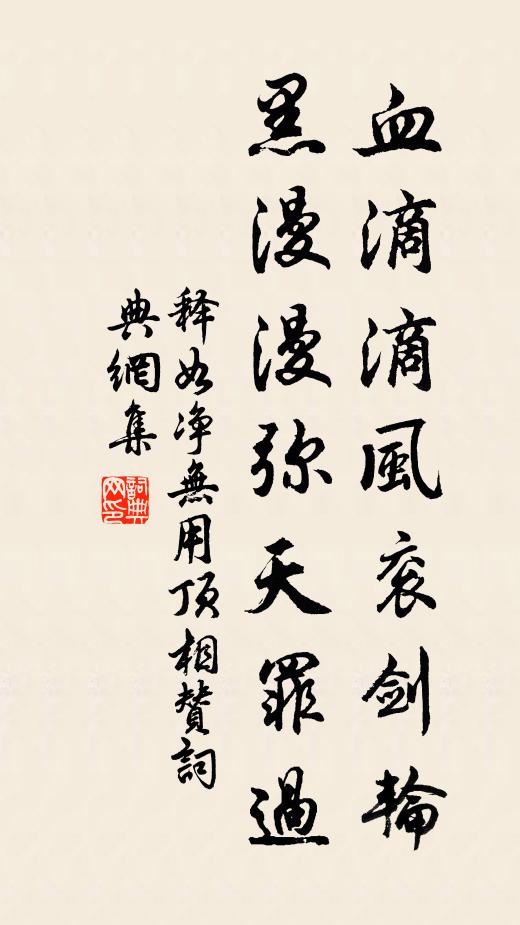 血滴滴風衮劍輪
黑漫漫弥天罪過
释如净無用頂相賛詞
典網集
詞典
网印